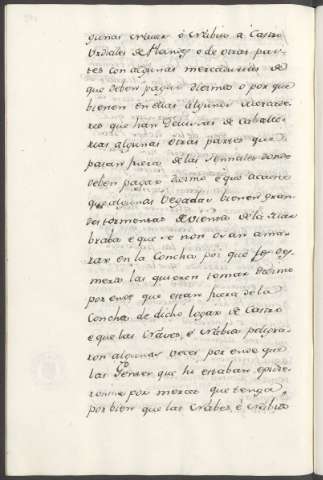 gunas Naves ò Navios à Castro
Urdiales de Flandes o de otras par-
tes con algunas mercadurias de
que deben pagar diezmo o por que
bienen en ellas algunos mercade-
res que han
rias algunas otras partes que
pasan fuera de las Sennales donde
deben pagar diezmo è que acaece
que algunas vegadas bienen gran-
des tormentas de viento de la Mar
braba è que se non osan ama-
rar en la Concha por que
meros las quieren tomar diezmo
por ende que estan fuera de la
Concha de dicho logar de Castro
è que las Naves, è Navios peligra-
ron algunas veces por ende que
las Gentes que hi estaban,
ronme por merced que tenga
por bien que las Nabes, è Nabios